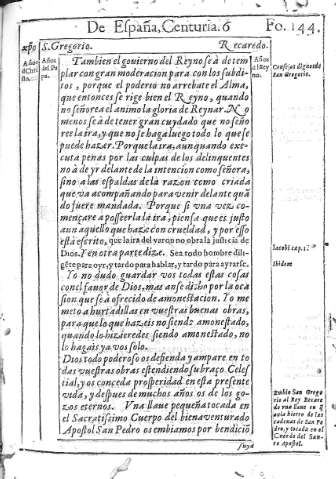 De España, Centuria. 6 Fo. 144.
xp̄o S. Gregorio. Recaredo.
Años del Christo. Años del Papa. Años del Reyno.
Tambien el gouierno del Reyno se à de tem
plar con gran moderacion para con los subdi
tos, porque el poder os no arrebate el Alma,
que entonces se rige bien el Reyno, quando
no señorea el animo la gloria de Reynar. No
menos se à de tener gran cuydado que no seño
ree la ira, y que no se haga luego todo lo que se
puede hazar. Porque la ira, aun quando exe-
cuta penas por las culpas de los delinquentes
no à de yr delante de la intencion como señora,
sino a las espaldas de la razon como criada
que va acompañando para venir delante quã
do fuere mandada. Porque si vna vez co-
mençare a posseerla la ira, piensa que es justo
aun aquello que haze con crueldad, y por esso
està escrito, que la ira del varon no obra la justicia de
Dios. Y en otra parte dize. Sea todo hombre dili-
gẽte para oyr, y tardo para hablar, y tardo para ayrarse.
Yo no dudo guardar vos todas estas cosas
con el fauor de Dios, mas anse dicho por la oca
sion que se à ofrecido de amonestacion. Yo me
meto a hurtadillas en vuestras buenas obras,
para que lo que hazeis no siendo amonestado,
quando lo hizieredes siendo amonestado, no
lo hagais ya vos solo.
Dios todo poderoso os defienda y ampare en to
das vuestras obras estendiendo su braço Celes-
tial, y os conceda prosperidad en esta presente
vida, y despues de muchos años os de los go-
zos eternos. Vna llaue pequeña tocada en
el Sacratissimo Cuerpo del bienauenturado
Apostol San Pedro os embiamos por bendició
suya
San Gregorio.
Iacobi cap. 1.
Ibidem
Embio San Grego
rio al Rey Recare
do vna llaue con
hierro de las
cadenas de San Pe
dro, y tocada en el
Cuerpo del San-
to Apostol.